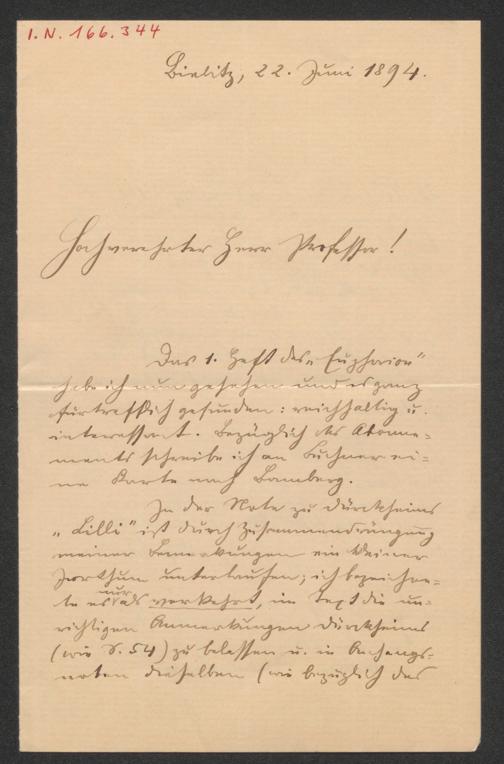 I.N. 166.344
Bielitz, 22. Juni 1894.
Hochverehrter Herr Professor!
Das 1. Heft des „Euphorion"
habe ich nun gesehen und es ganz
fürtrefflich gefunden: reichhaltig u.
interessant. Bezüglich des Abonne-
ments schreibe ich an Buchner ei-
ne Karte nach Bamberg.
In der Note zu Dürckheims
„Lilli" ist durch Zusammendrängung
meiner Bemerkungen ein kleiner
Irrthum unterlaufen; ich bezeichne-
te es nur als verkehrt, im Text die un-
richtigen Anmerkungen Dürckheims
(wie S. 54) zu belassen u. in Anhangs-
noten dieselben (wie bezüglich des